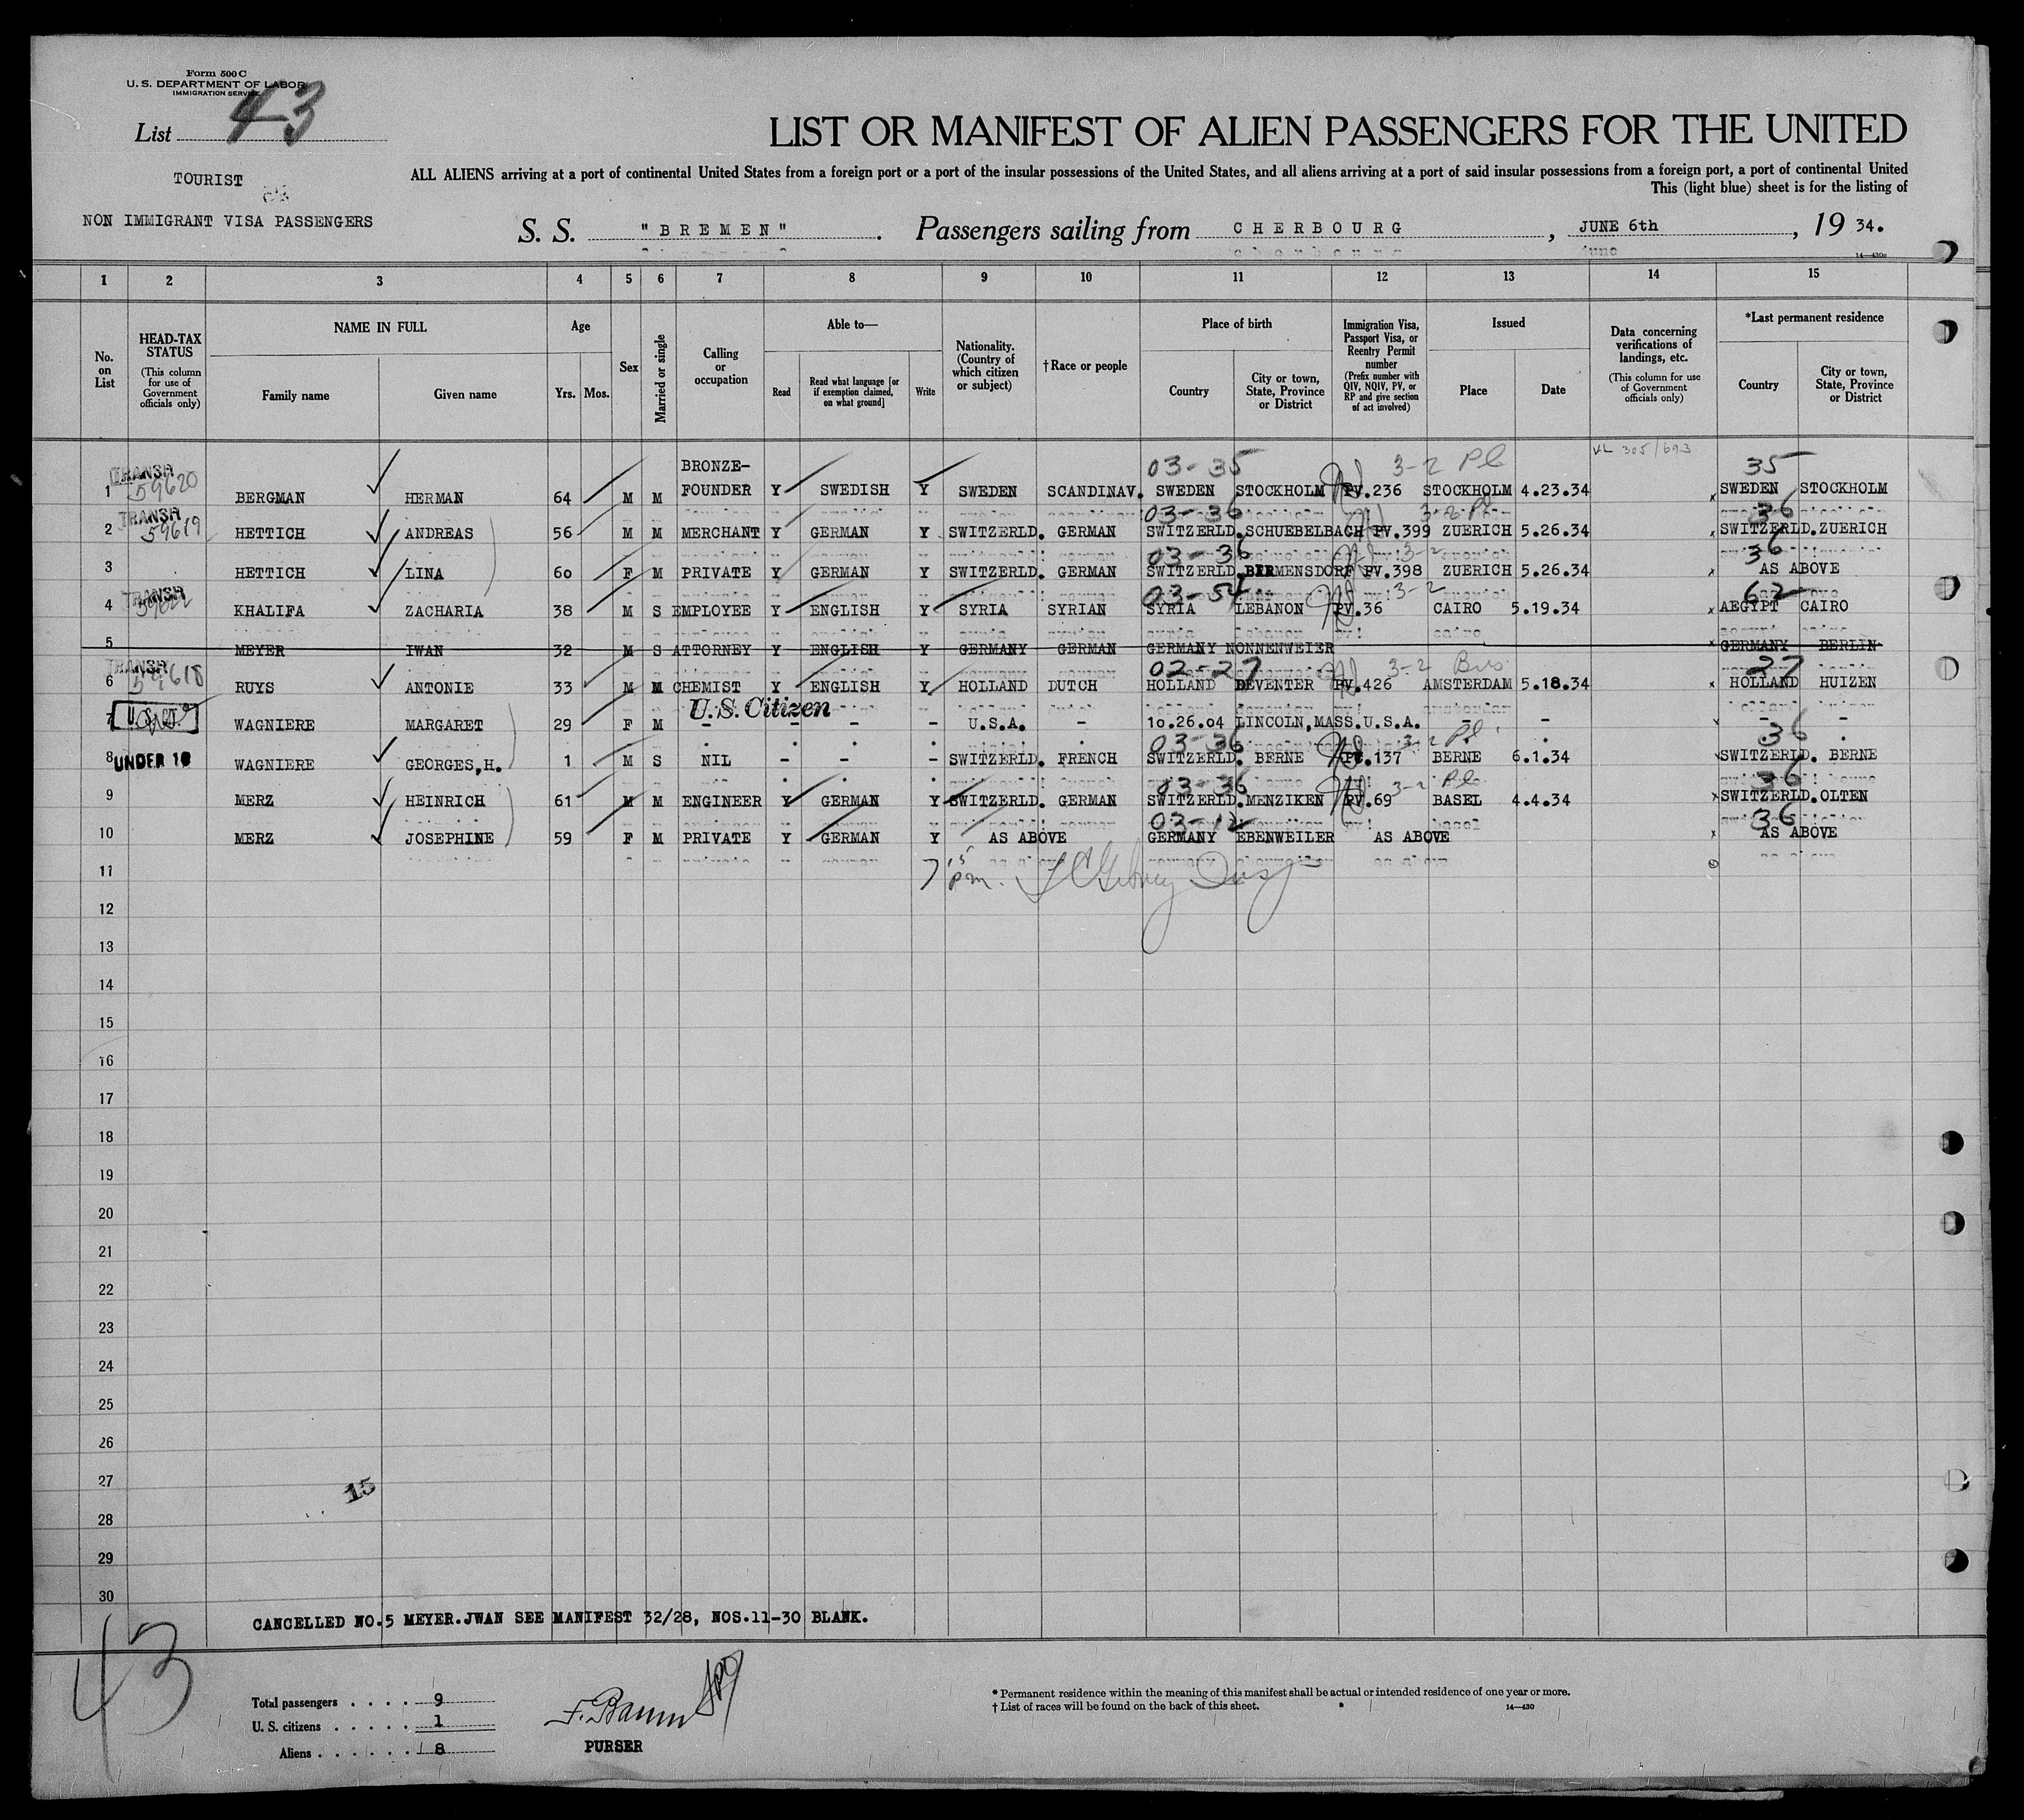 Form 500 C
U. S. DEPARTMENT OF LABOR
IMMIGRATION SERVICE
List 43
LIST OR MANIFEST OF ALIEN PASSENGERS FOR THE UNITED
ALL ALIENS arriving at a port of continental United States from a foreign port or a port of the insular possessions of the United States, and all aliens arriving at a port of said insular possessions from a foreign port, a port of continental United
This (light blue) sheet is for the listing of
TOURIST
NON IMMIGRANT VISA PASSENGERS
S. S. "BREMEN". Passengers sailing from CHERBOURG, JUNE 6th, 19 34.
14—430c
1 2 3 4 5 6 7 8 9 10 11 12 13 14 15
No. on List
HEAD-TAX STATUS (This column for use of Government officials only)
NAME IN FULL
Family name Given name
Age
Yrs. Mos.
Sex
Married or single
Calling or occupation
Able to—
Read
Read what language [or if exemption claimed, on what ground]
Write
Nationality. (Country of which citizen or subject)
†Race or people
Place of birth
Country
City or town, State, Province or District
Immigration Visa, Passport Visa, or Reentry Permit number (Prefix number with QIV, NQIV, PV, or RP and give section of act involved)
Issued
Place Date
Data concerning verifications of landings, etc. (This column for use of Government officials only)
*Last permanent residence
Country
City or town, State, Province or District
03-35 3-2 Pl 305/693 35
1 TRANSIT 59620 BERGMAN HERMAN 64 M M BRONZE-FOUNDER Y SWEDISH Y SWEDEN SCANDINAV. SWEDEN STOCKHOLM PV.236 STOCKHOLM 4.23.34 SWEDEN STOCKHOLM
03-36 3-2 Pl 36
2 TRANSIT 59619 HETTICH ANDREAS 56 M M MERCHANT Y GERMAN Y SWITZERLD. GERMAN SWITZERLD. SCHUEBELBACH PV.399 ZUERICH 5.26.34 SWITZERLD. ZUERICH
03-36 3-2 36
3 HETTICH LINA 60 F M PRIVATE Y GERMAN Y SWITZERLD. GERMAN SWITZERLD. BIRMENSDORF PV.398 ZUERICH 5.26.34 AS ABOVE
03-54 3-2 62
4 TRANSIT KHALIFA ZACHARIA 38 M S EMPLOYEE Y ENGLISH Y SYRIA SYRIAN SYRIA LEBANON PV.36 CAIRO 5.19.34 AEGYPT CAIRO
5 MEYER IWAN 32 M S ATTORNEY Y ENGLISH Y GERMANY GERMAN GERMANY NONNENWEIER GERMANY BERLIN
02-27 3-2 27
6 TRANSIT 59618 RUYS ANTONIE 33 M M CHEMIST Y ENGLISH Y HOLLAND DUTCH HOLLAND DEVENTER PV.426 AMSTERDAM 5.18.34 HOLLAND HUIZEN
U.S. Citizen
7 U.S. CIT. WAGNIERE MARGARET 29 F M - - - - U.S.A. - 10.26.04 LINCOLN,MASS.U.S.A. - - -
03-36 3-2 Pl 36
8 UNDER 16 WAGNIERE GEORGES,H. 1 M S NIL - - - SWITZERLD. FRENCH SWITZERLD. BERNE PV.137 BERNE 6.1.34 SWITZERLD. BERNE
03-36 3-2 Pl 36
9 MERZ HEINRICH 61 M M ENGINEER Y GERMAN Y SWITZERLD. GERMAN SWITZERLD. MENZIKEN PV.69 BASEL 4.4.34 SWITZERLD. OLTEN
03-12 36
10 MERZ JOSEPHINE 59 F M PRIVATE Y GERMAN Y AS ABOVE GERMANY EBENWEILER AS ABOVE AS ABOVE
11 7 15 pm.
12
13
14
15
16
17
18
19
20
21
22
23
24
25
26
27 15
28
29
30
CANCELLED NO.5 MEYER.JWAN SEE MANIFEST 32/28, NOS.11-30 BLANK.
43
Total passengers . . . . 9
U. S. citizens . . . . . 1
Aliens . . . . . . 8
F. Baum
PURSER
* Permanent residence within the meaning of this manifest shall be actual or intended residence of one year or more.
† List of races will be found on the back of this sheet.
14—430